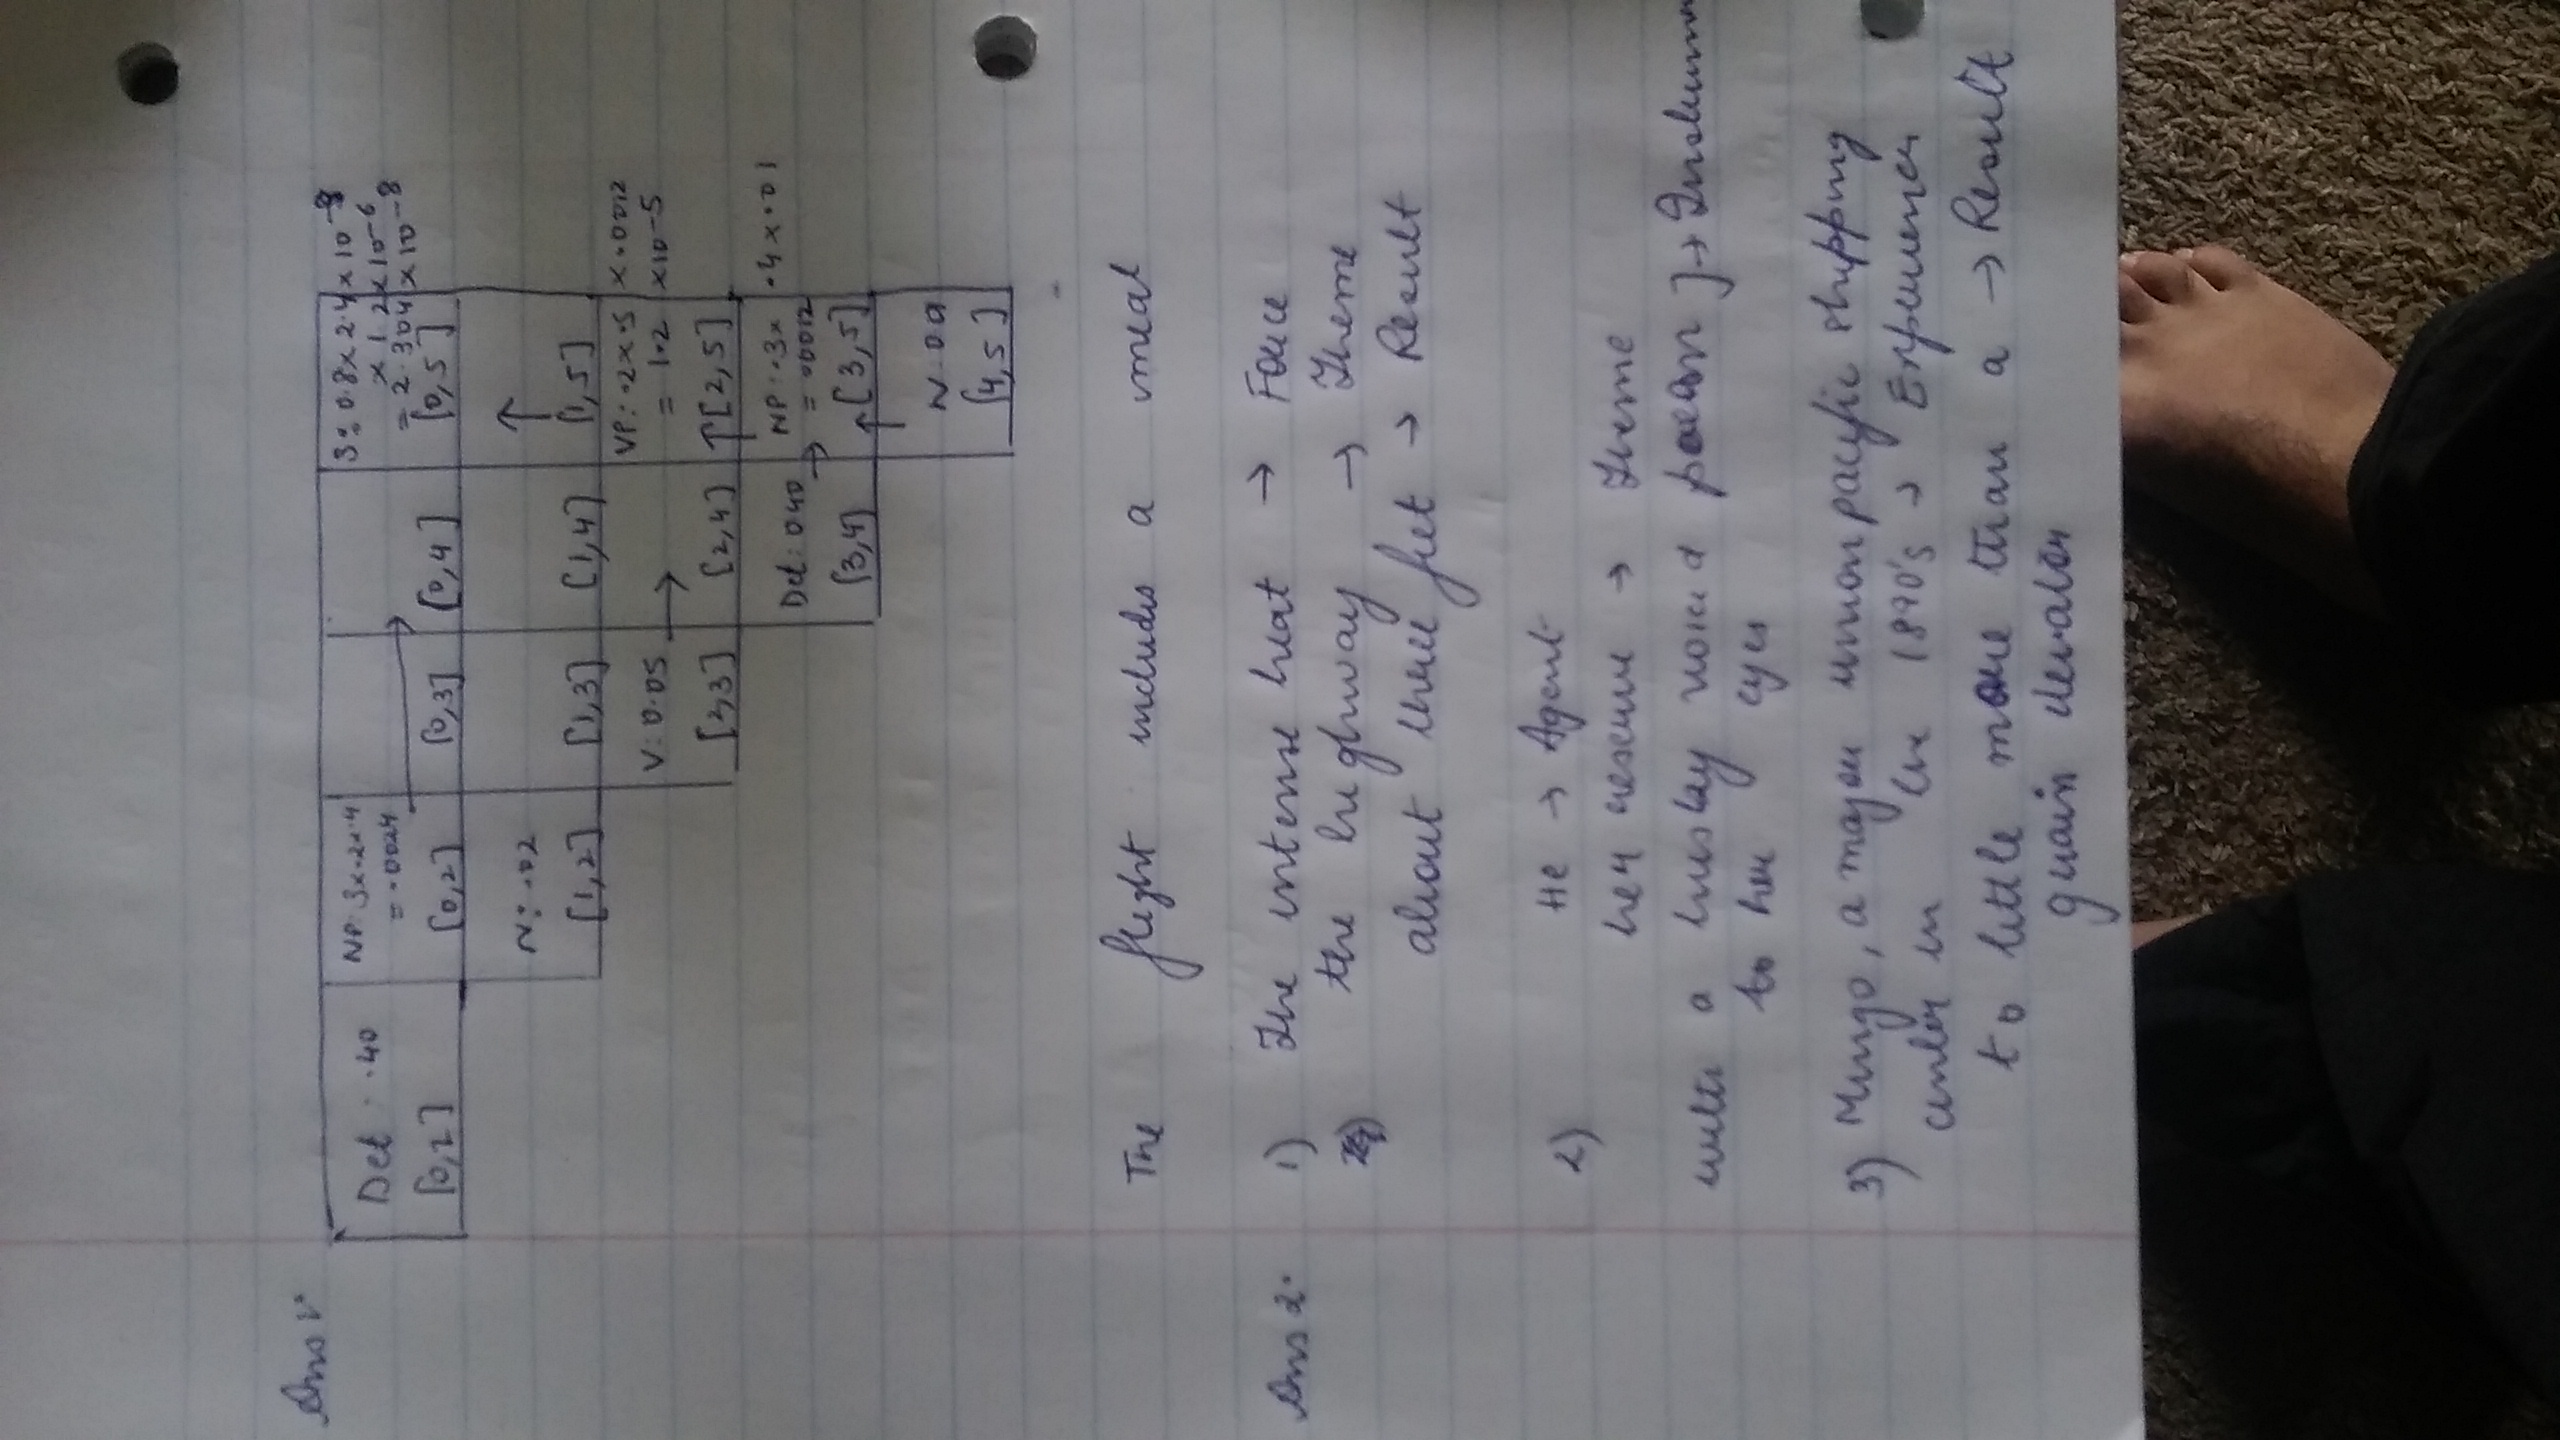 Ans 1.
Det : .40
[0,2]
NP: .3x.2x.4
= .0024
[0,2]
[0,3]
[0,4]
S: 0.8x2.4x10-8
x 1.2x10-6
= 2.304x10-8
[0,5]
N: .02
[1,2]
[1,3]
[1,4]
[1,5]
V: 0.05
[2,3]
[2,4]
VP: .2x5x.0012
= 1.2x10-5
[2,5]
Det: 0.40
[3,4]
NP: .3x.4x.01
= .0012
[3,5]
N: 0.01
[4,5]
The flight includes a meal
Ans 2.
1) The intense heat → Force
the highway → Theme
about three feet → Result
2) He → Agent
her rescue → Theme
with a husky voice a
to her eyes
3) Mungo, a major union pacific shipping
center in the 1890's → Experiencer
to little more than a → Result
grain elevator